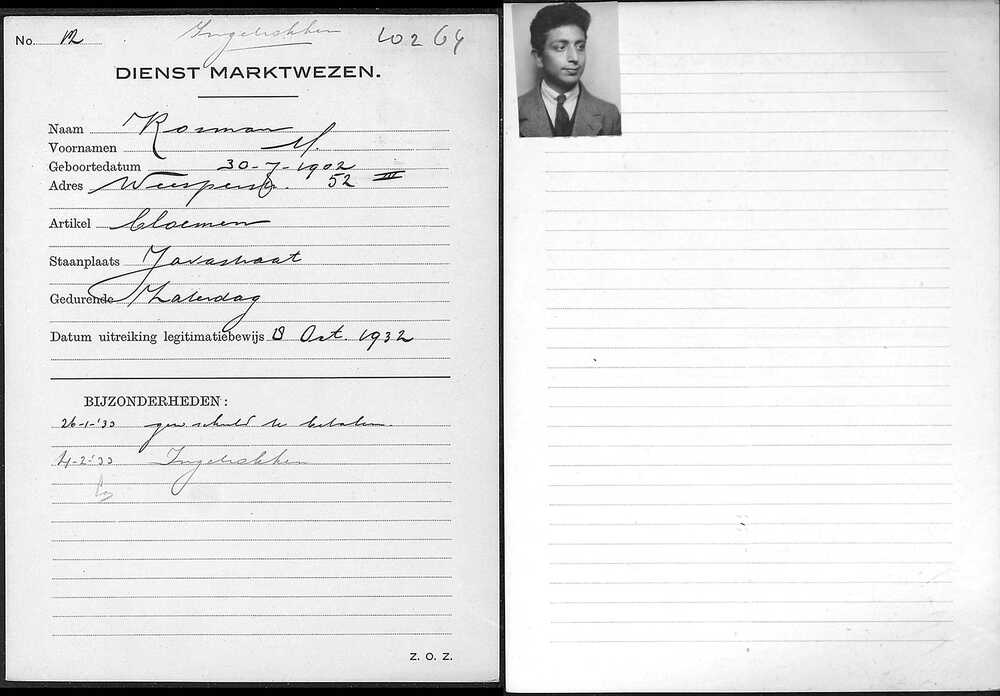 No. 12 Ingetrokken 40264
DIENST MARKTWEZEN.
Naam Kosman
Voornamen M.
Geboortedatum 30-7-1902
Adres Weesperstr. 52 III
Artikel Bloemen
Staanplaats Javastraat
Gedurende Zaterdag
Datum uitreiking legitimatiebewijs 8 Oct. 1932
BIJZONDERHEDEN:
26-1-'33 geen schuld te betalen.
4-2-'33 Ingetrokken
Z. O. Z.